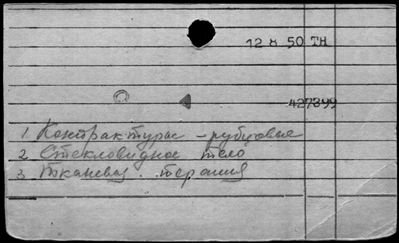 12 X 50 TH
427399
1. Контрактуры - рубцовые
2. Стекловидное тело
3. Тканевая терапия